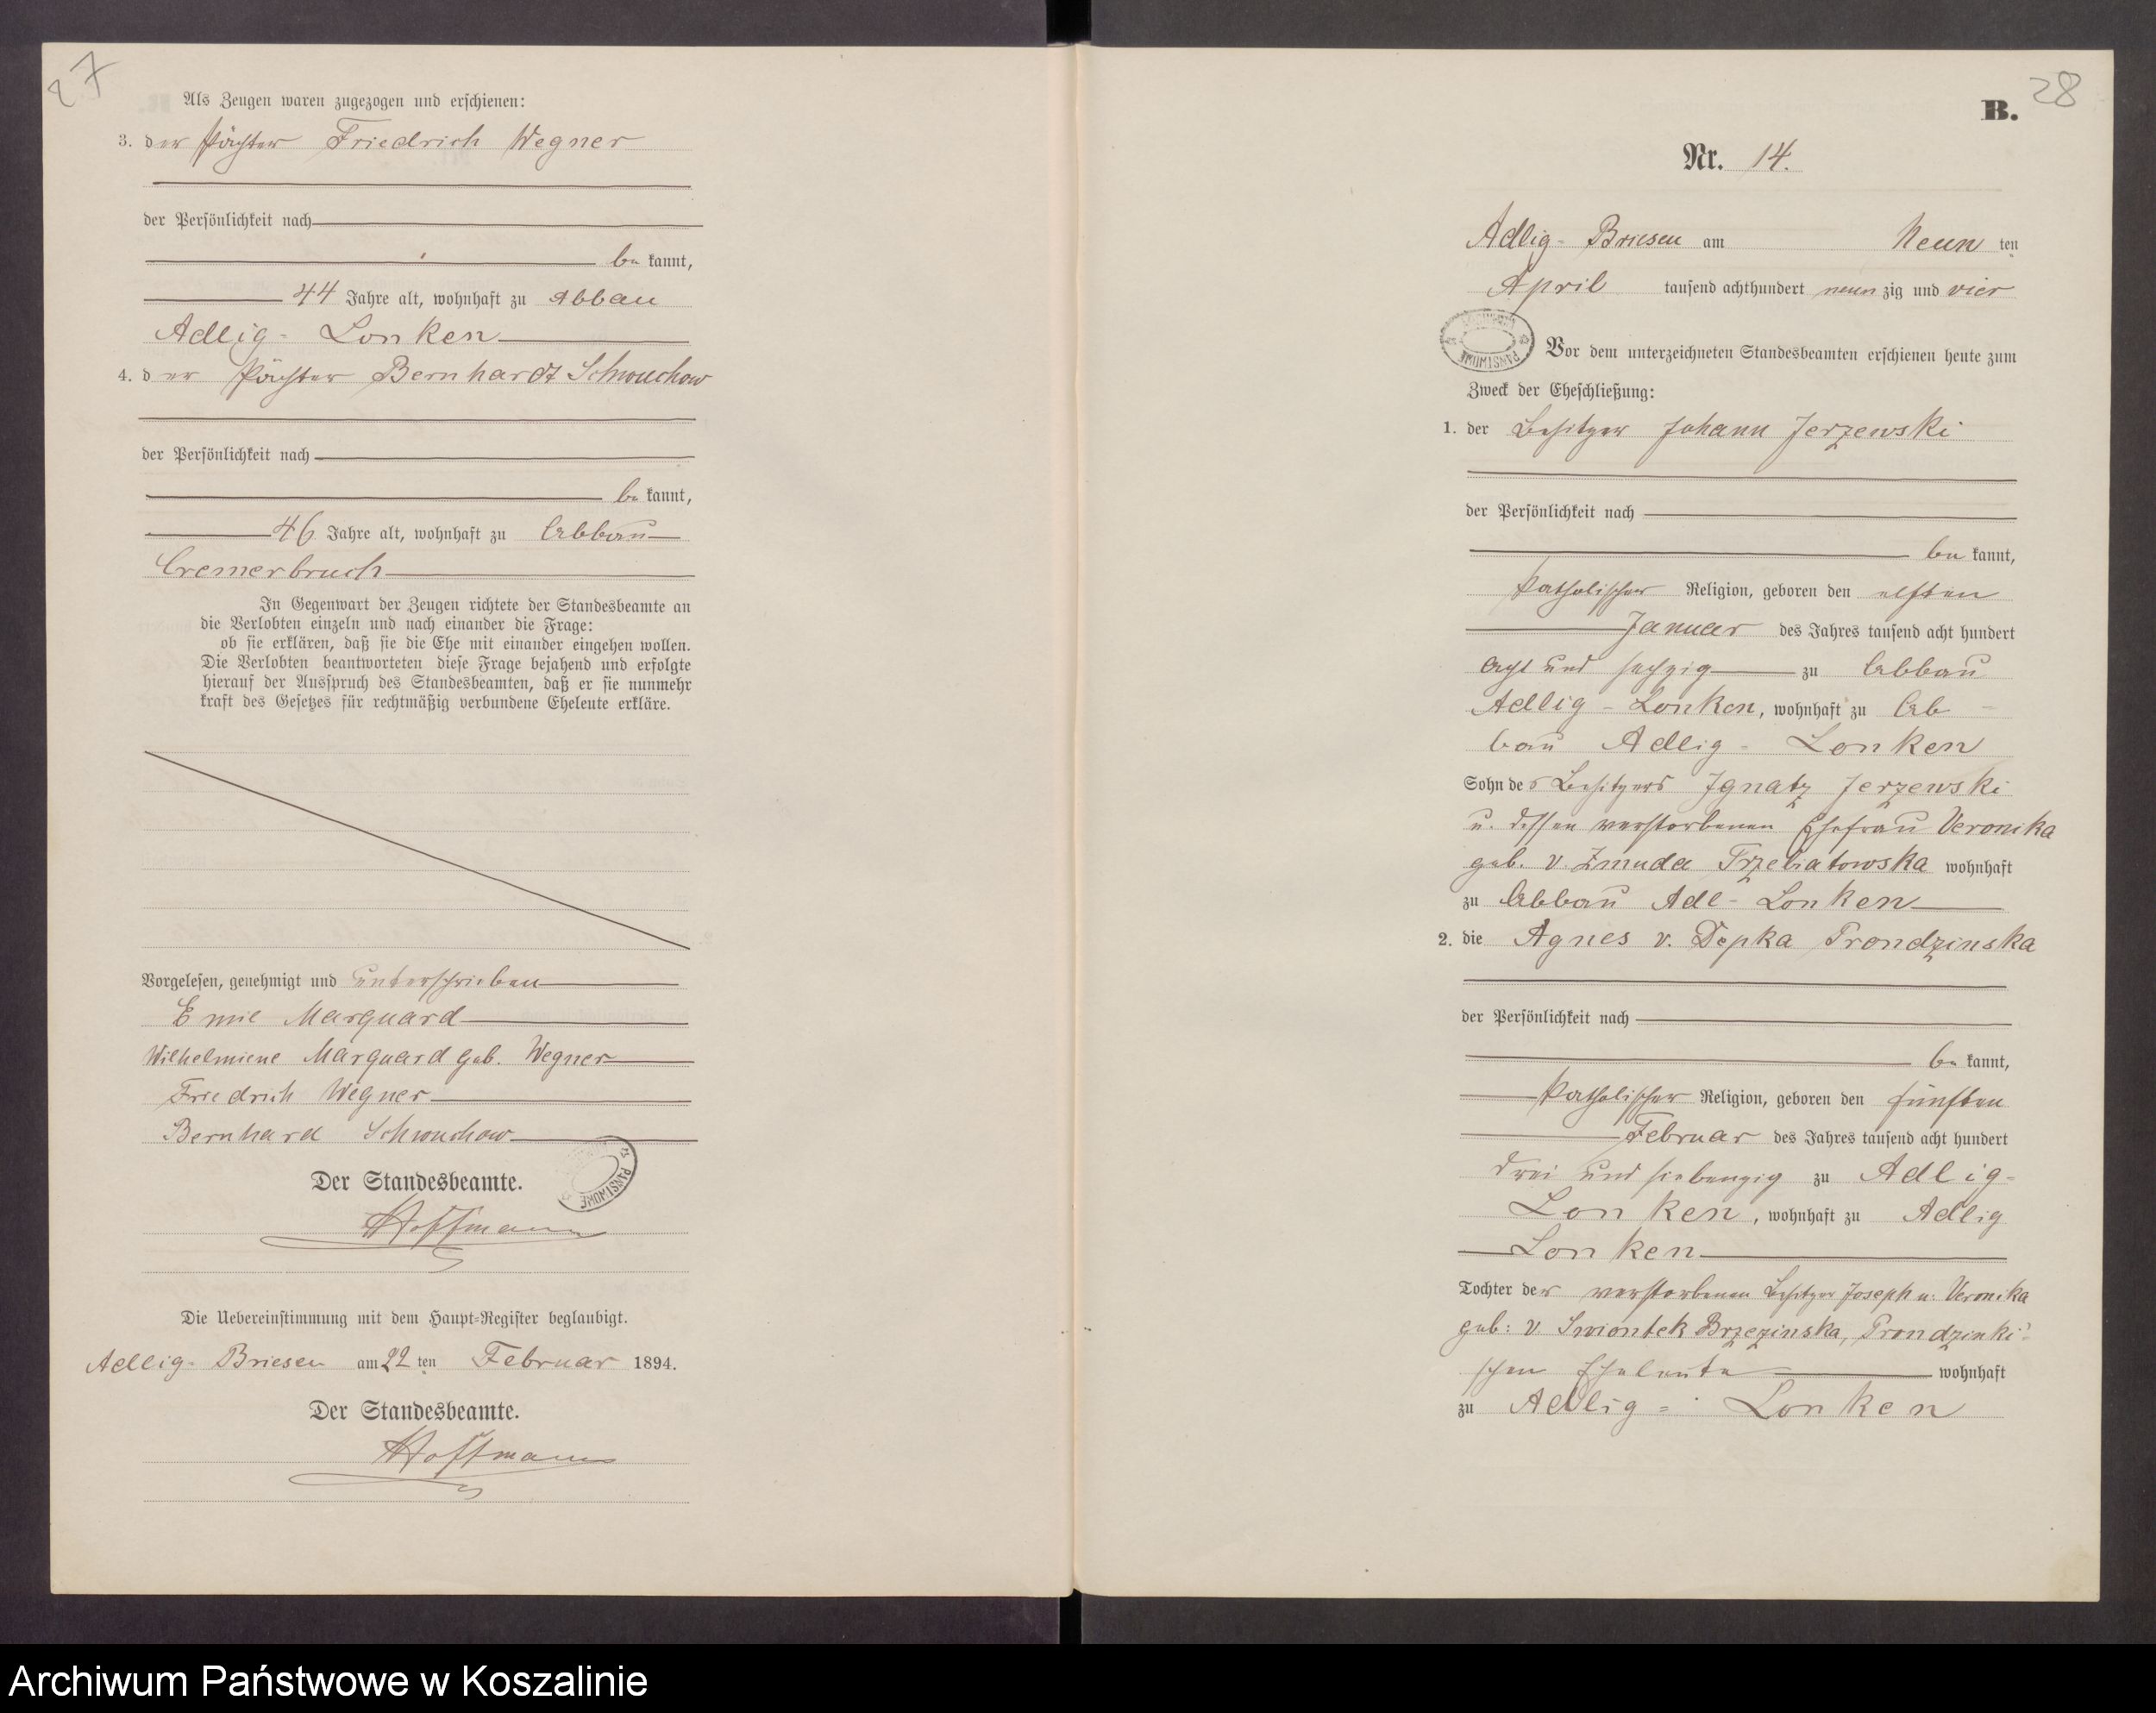 27
Als Zeugen waren zugezogen und erschienen:
3. der Pächter Friedrich Wegner
der Persönlichkeit nach
be kannt,
44 Jahre alt, wohnhaft zu Abbau
Adlig- Lonken
4. der Pächter Bernhardt Schwuchow
der Persönlichkeit nach
be kannt,
46 Jahre alt, wohnhaft zu Abbau
Cremerbruch
In Gegenwart der Zeugen richtete der Standesbeamte an
die Verlobten einzeln und nach einander die Frage:
ob sie erklären, daß sie die Ehe mit einander eingehen wollen.
Die Verlobten beantworteten diese Frage bejahend und erfolgte
hierauf der Ausspruch des Standesbeamten, daß er sie nunmehr
kraft des Gesetzes für rechtmäßig verbundene Eheleute erkläre.
Vorgelesen, genehmigt und unterschrieben
Emil Marquard
Wilhelmiene Marquard geb. Wegner
Friedrich Wegner
Bernhard Schwuchow
Der Standesbeamte.
Hoffmann
Die Uebereinstimmung mit dem Haupt-Register beglaubigt.
Adlig- Briesen am 22 ten Februar 1894.
Der Standesbeamte.
Hoffmann
28
B.
Nr. 14.
Adlig- Briesen am Neun ten
April tausend achthundert neun zig und vier
Vor dem unterzeichneten Standesbeamten erschienen heute zum
Zweck der Eheschließung:
1. der Besitzer Johann Jerzewski
der Persönlichkeit nach
be kannt,
katholischer Religion, geboren den elften
Januar des Jahres tausend acht hundert
acht und sechzig zu Abbau
Adlig - Lonken, wohnhaft zu Ab-
bau Adlig- Lonken
Sohn des Besitzers Ignatz Jerzewski
u. dessen verstorbenen Ehefrau Veronika
geb. v. Zmuda Trzebiatowska wohnhaft
zu Abbau Adl- Lonken
2. die Agnes v. Depka Prondzinska
der Persönlichkeit nach
be kannt,
katholischer Religion, geboren den fünften
Februar des Jahres tausend acht hundert
drei und siebenzig zu Adlig-
Lonken, wohnhaft zu Adlig
Lonken
Tochter der verstorbenen Besitzer Joseph u. Veronika
geb: v Swiontek Brzezinska, Prondzinki-
schen Eheleute wohnhaft
zu Adlig- Lonken
Archiwum Państwowe w Koszalinie